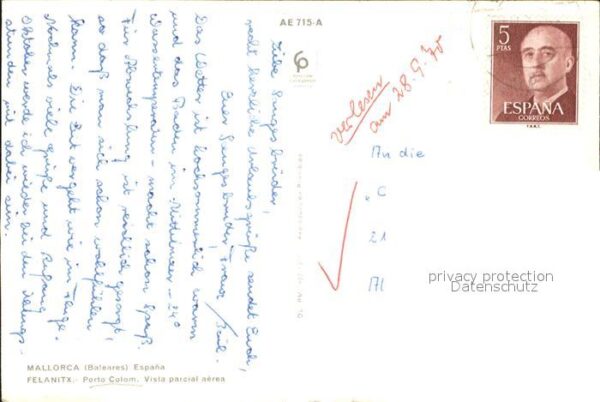 AE 715-A
5
PTAS
ESPAÑA
CORREOS
F.N.M.T.
verlesen
am 28.9.75
An die
C
21
171
privacy protection
Datenschutz
Liebe Sangesbrüder,
recht herzliche Urlaubsgrüße sendet Euch,
Euer Sangesbruder, Franz
Das Wetter ist hochsommerlich warm
und das Baden im Mittelmeer – 24°
Wassertemperatur – macht schon Spaß.
Für Abwechslung ist reichlich gesorgt,
so daß man sich schon wohlfühlen
kann. Die Zeit vergeht wie im Fluge.
Nochmals viele Grüße und Anfang
Oktober werde ich wieder bei den
stunden mit dabei sein.
MALLORCA (Baleares) España
FELANITX.- Porto Colom. Vista parcial aérea